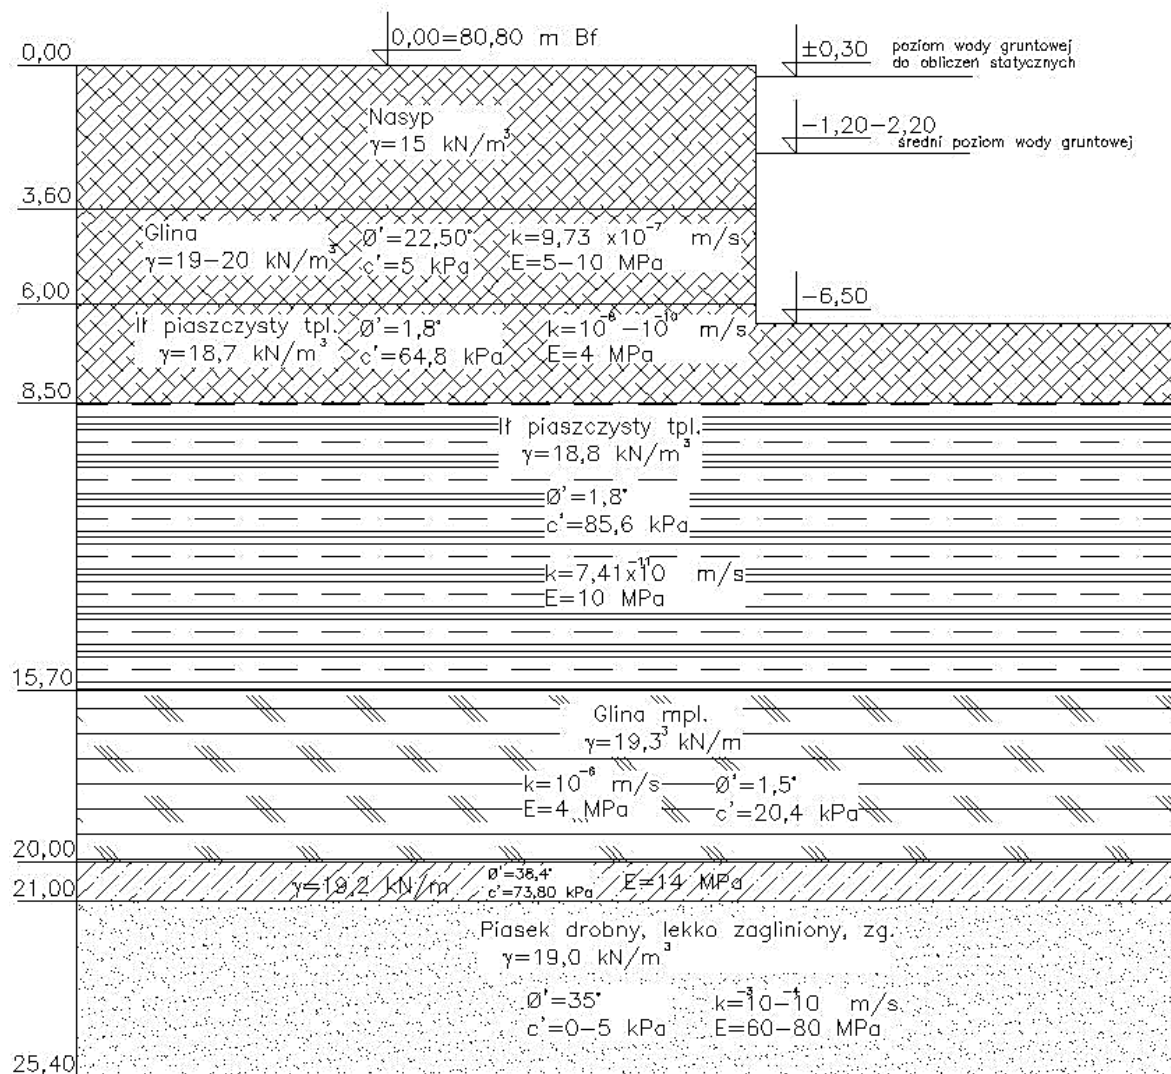 0,00
0,00=80,80 m Bf
±0,30
poziom wody gruntowej
do obliczeń statycznych
Nasyp
γ=15 kN/m³
-1,20-2,20
średni poziom wody gruntowej
3,60
Glina
γ=19-20 kN/m³
Ø'=22,50°
c'=5 kPa
k=9,73 x10⁻⁷ m/s
E=5-10 MPa
6,00
-6,50
Ił piaszczysty tpl.
γ=18,7 kN/m³
Ø'=1,8°
c'=64,8 kPa
k=10⁻⁸-10⁻¹⁰ m/s
E=4 MPa
8,50
Ił piaszczysty tpl.
γ=18,8 kN/m³
Ø'=1,8°
c'=85,6 kPa
k=7,41x10⁻¹¹ m/s
E=10 MPa
15,70
Glina mpl.
γ=19,3³ kN/m
k=10⁻⁶ m/s
E=4 MPa
Ø'=1,5°
c'=20,4 kPa
20,00
γ=19,2 kN/m
Ø'=38,4°
c'=73,80 kPa
E=14 MPa
21,00
Piasek drobny, lekko zagliniony, zg.
γ=19,0 kN/m³
Ø'=35°
c'=0-5 kPa
k=10⁻³-10⁻⁴ m/s
E=60-80 MPa
25,40